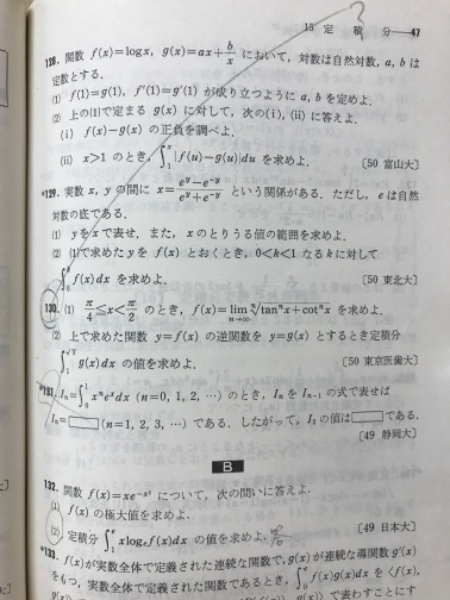 15 定積分——47
128. 関数 f(x)=logx, g(x)=ax+b/x において, 対数は自然対数, a, b は
定数とする.
(1) f(1)=g(1), f'(1)=g'(1) が成り立つように a, b を定めよ.
(2) 上の(1)で定まる g(x) に対して, 次の(i), (ii) に答えよ.
(i) f(x)−g(x) の正負を調べよ.
(ii) x>1 のとき, ∫₁ˣ|f(u)−g(u)|du を求めよ. 〔50 富山大〕
*129. 実数 x, y の間に x=(e^y−e^−y)/(e^y+e^−y) という関係がある. ただし, e は自然
対数の底である.
(1) y を x で表せ. また, x のとりうる値の範囲を求めよ.
(2) (1)で求めた y を f(x) とおくとき, 0<k<1 なる k に対して
f(x)dx を求めよ. 〔50 東北大〕
130. (1) π/4≦x<π/2 のとき, f(x)=lim n→∞ ⁿ√(tanⁿx+cotⁿx) を求めよ.
(2) 上で求めた関数 y=f(x) の逆関数を y=g(x) とするとき定積分
∫₁^√3 g(x)dx の値を求めよ. 〔50 東京医歯大〕
*131. Iₙ=∫₀¹xⁿeˣdx (n=0, 1, 2, …) のとき, Iₙ を Iₙ₋₁ の式で表せば
Iₙ=□ (n=1, 2, 3, …) である. したがって, I₃ の値は□である.
〔49 静岡大〕
B
132. 関数 f(x)=xe^−x² について, 次の問いに答えよ.
(1) f(x) の極大値を求めよ.
(2) 定積分 ∫₁ᵉ xlogₑf(x)dx の値を求めよ. 〔49 日本大〕
*133. f(x)が実数全体で定義された連続な関数で, g(x) が連続な導関数 g'(x)
をもつ, 実数全体で定義された関数であるとき, f(x)g(x)dx を 〈f(x),
で表わすことにす